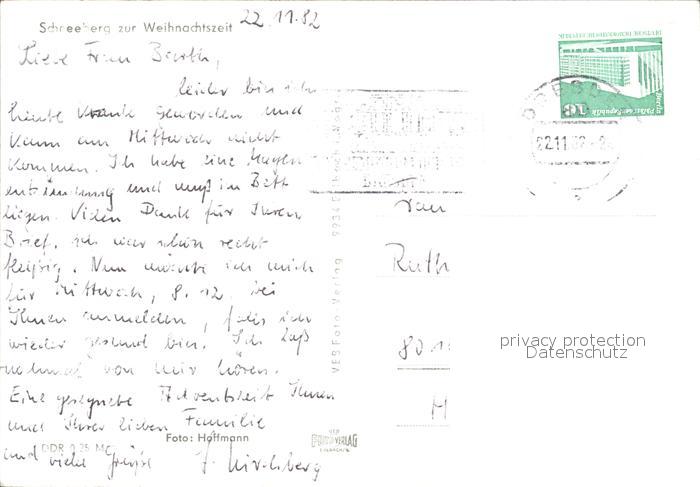 Schneeberg zur Weihnachtszeit
22.11.82
Liebe Frau Barth,
leider bin ich
heute krank geworden und
kann am Mittwoch nicht
kommen. Ich habe eine Magen-
entzündung und muß im Bett
liegen. Vielen Dank für Ihren
Brief, ich war schon recht
fleißig. Nun möchte ich mich
für Mittwoch, 8.12. bei
Ihnen anmelden, falls ich
wieder gesund bin. Ich laß
nochmal von mir hören.
Eine gesegnete Adventszeit Ihnen
und Ihrer lieben Familie
Foto: Hoffmann
DDR 0,25 M
und viele Grüße J. Kirchberg
VEB Foto-Verlag
VEB
FOTO-VERLAG
DEUTSCHE DEMOKRATISCHE REPUBLIK
Berlin
Palast der Republik
10
DRESDEN
22.11.82
rau
Ruth
801
privacy protection
Datenschutz